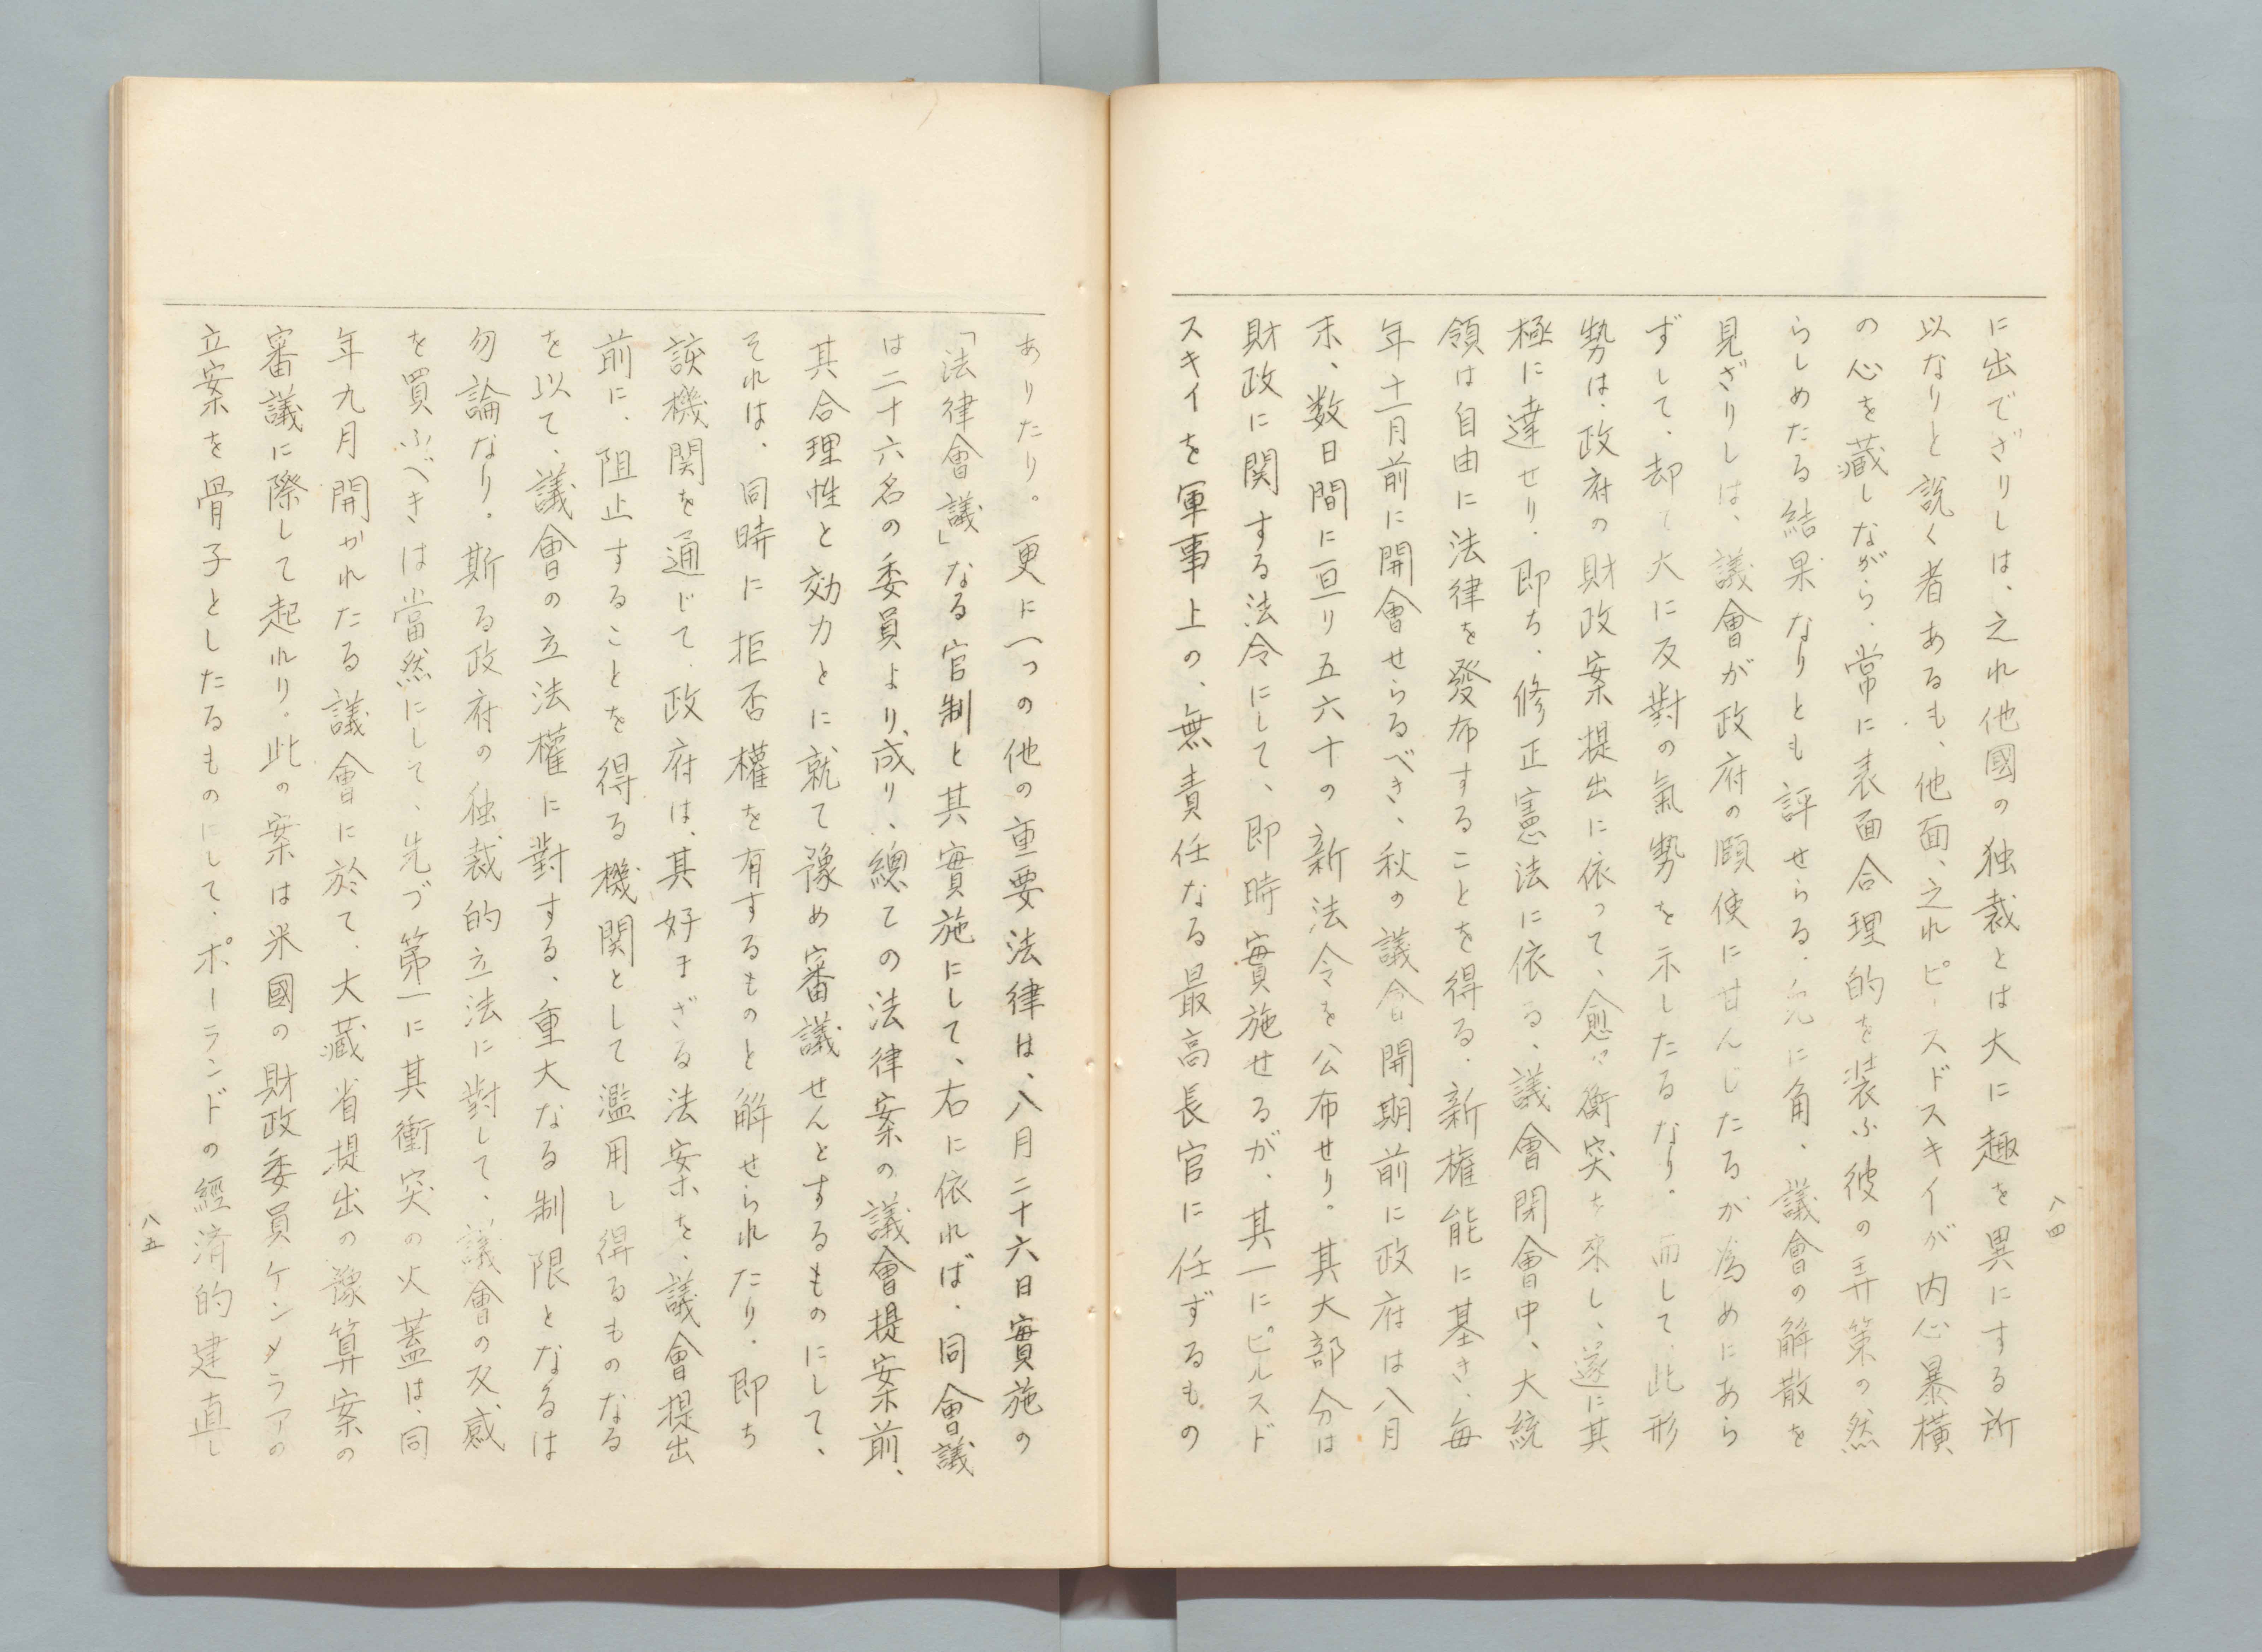 八四
に出でざりしは、之れ他國の独裁とは大に趣を異にする所
以なりと説く者あるも、他面、之れピースドスキイが内心暴横
の心を藏しながら、常に表面合理的を装ふ彼の弄策の然
らしめたる結果なりとも評せらる。兎に角、議會の解散を
見ざりしは、議會が政府の頤使に甘んじたるか為めにあら
ずして、却て大に反對の氣勢を示したるなり。而して、此形
勢は、政府の財政案提出に依って、愈々衝突を來し、遂に其
極に達せり。即ち、修正憲法に依る、議會閉會中、大統
領は自由に法律を發布することを得る、新権能に基き、毎
年十一月前に開會せらるべき、秋の議会開期前に政府は八月
末、数日間に亘り五六十の新法令を公布せり。其大部分は
財政に関する法令にして、即時實施せるが、其一にピルスド
スキイを軍事上の、無責任なる最高長官に任ずるもの
ありたり。更に一つの他の重要法律は、八月二十六日實施の
「法律會議」なる官制と其實施にして、右に依れば、同會議
は二十六名の委員より、成り、總ての法律案の議會提案前、
其合理性と効力とに就て豫め審議せんとするものにして、
それは、同時に拒否權を有するものと解せられたり。即ち
該機関を通じて、政府は、其好まざる法案を、議會提出
前に、阻止することを得る機関として濫用し得るものなる
を以て、議會の立法權に對する、重大なる制限となるは
勿論なり。斯る政府の独裁的立法に對して、議會の反感
を買ふべきは當然にして、先づ第一に其衝突の火蓋は、同
年九月開かれたる議會に於て、大藏省提出の豫算案の
審議に際して起れり。此の案は米國の財政委員ケンメラアの
立案を骨子としたるものにして、ポーランドの經済的建直し
八五